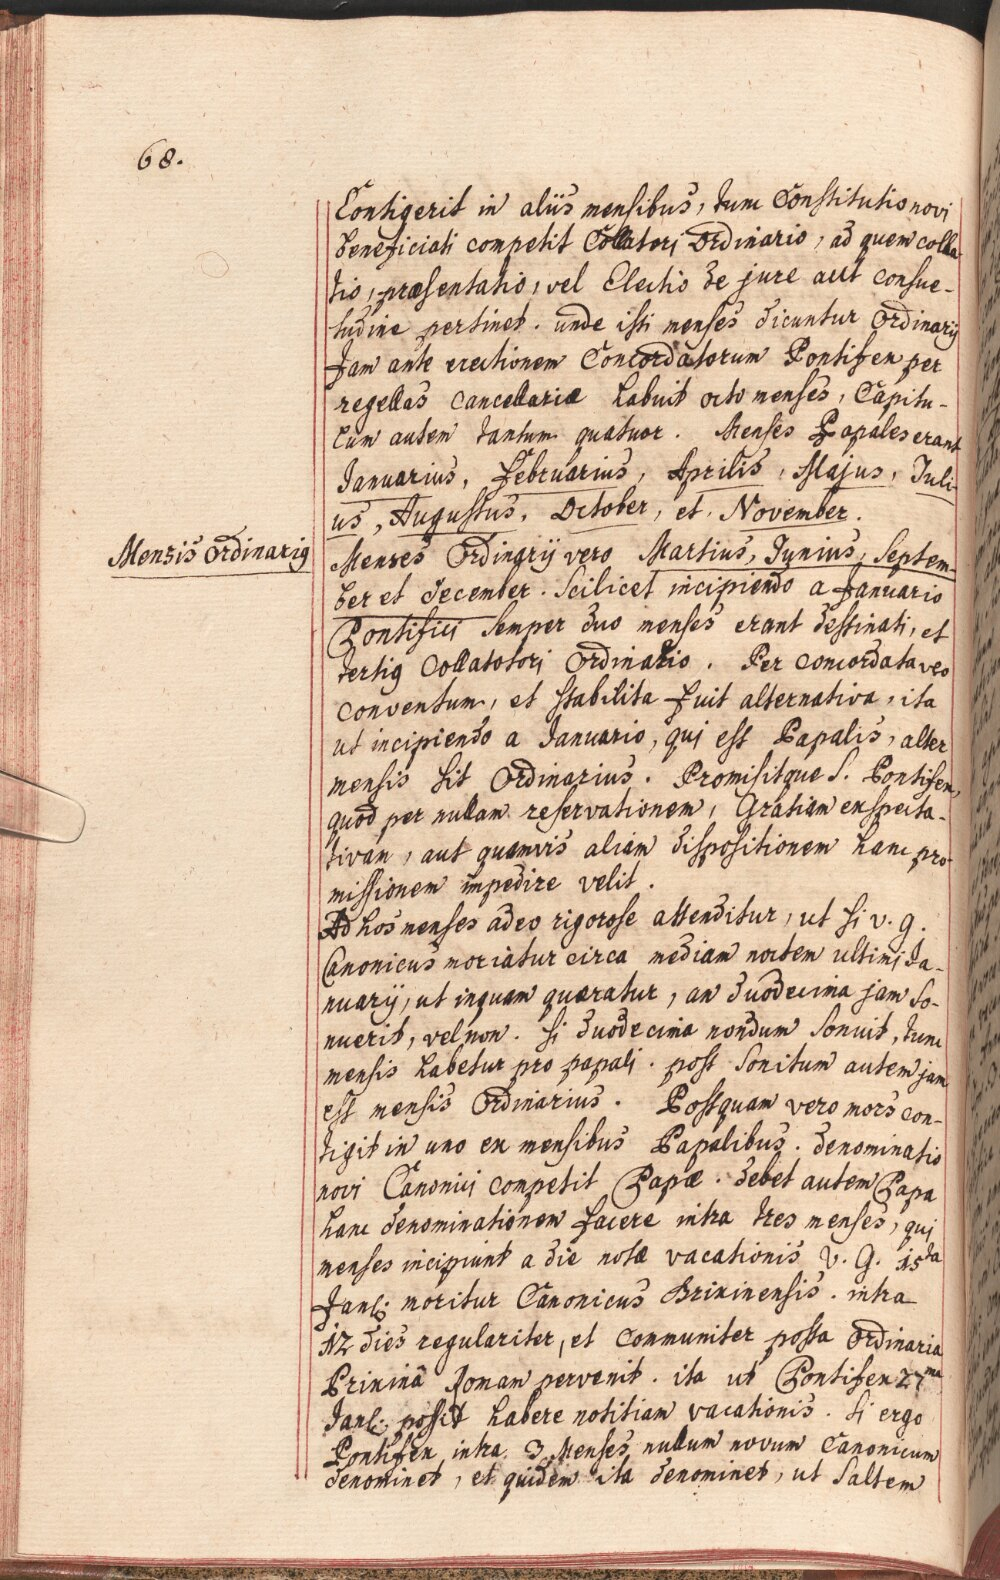 68.
Contigerit in aliis mensibus, tunc Constitutio novi
beneficiati competit Collatori Ordinario, ad quem colla-
tio, præsentatio, vel Electio de jure aut consue-
tudine pertinet. unde isti menses dicuntur Ordinarij
Jam ante erectionem Concordatorum Pontifex per
regellas cancellariæ habuit octo menses, Capitu-
lum autem tantum quatuor. Menses Papales erant
Januarius, Februarius, Aprilis, Majus, Juli-
us, Augustus, October, et November.
Mensis Ordinarig
Menses Ordinarij vero Martius, Junius, Septem-
ber et December. Scilicet incipiendo a Januario
Pontifici semper duo menses erant destinati, et
tertig Collatotori Ordinario. Per concordata vero
conventum, et stabilita fuit alternativa, ita
ut incipiendo a Januario, qui est Papalis, alter
mensis sit Ordinarius. Promisitque S. Pontifex,
quod per nullam reservationem, Gratiam exspecta-
tivam, aut quamvis aliam dispositionem hanc pro-
missionem impedire velit.
Ad hos menses adeo rigorose attenditur, ut si v. g.
Canonicus moriatur circa mediam noctem ultimi Ja-
nuarij, ut inquam quæratur, an duodecima jam so-
nuerit, vel non. si duodecima nondum sonuit, tunc
mensis habetur pro papali. post sonitum autem jam
est mensis Ordinarius. Postquam vero mors con-
tigit in uno ex mensibus Papalibus. denominatio
novi Canonici competit Papæ. debet autem Papa
hanc denominationem facere intra tres menses, qui
menses incipiunt a die notæ vacationis V. G. 15ta
Jan: moritur Canonicus Brixinensis. intra
12 dies regulariter, et communiter posta Ordinaria
Prixinâ Romam pervenit. ita ut Pontifex 27ma
Jan: possit habere notitiam vacationis. Si ergo
Pontifex intra 3 Menses nullum novum Canonicum
denominet, et quidem ita denominet, ut saltem